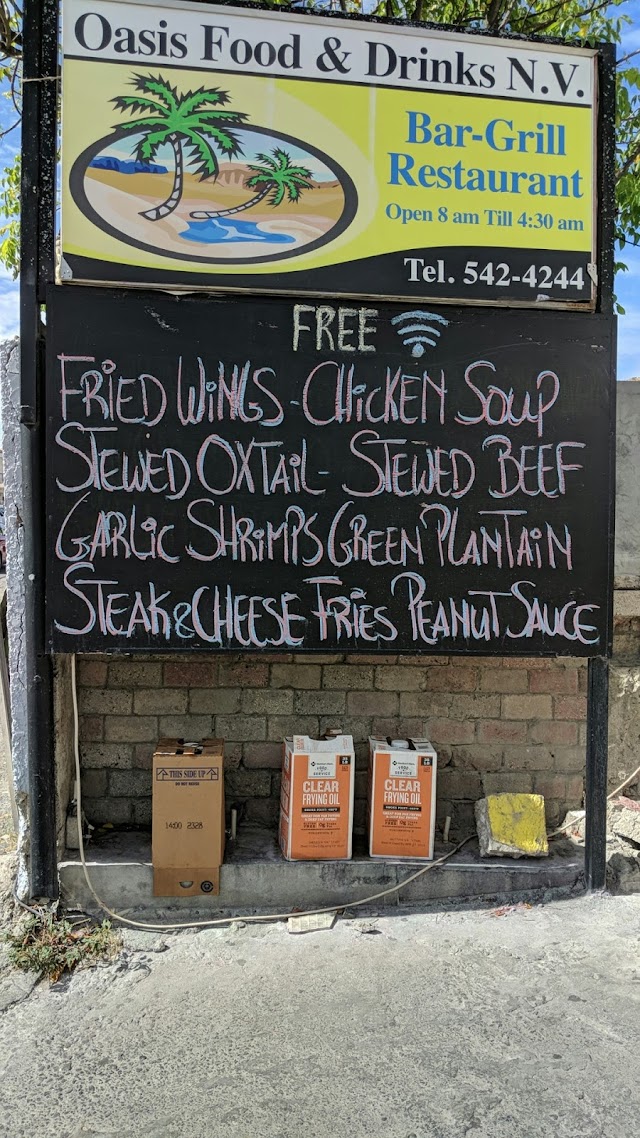 Oasis Food & Drinks N.V.
Bar-Grill
Restaurant
Open 8 am Till 4:30 am
Tel. 542-4244
FREE
FRIED WINGS - CHICKEN SOUP
STEWED OXTAIL - STEWED BEEF
GARLIC SHRIMPS GREEN PLANTAIN
STEAK & CHEESE FRIES PEANUT SAUCE
THIS SIDE UP
14:00 2328
SERVICE
CLEAR
FRYING OIL
SERVICE
CLEAR
FRYING OIL